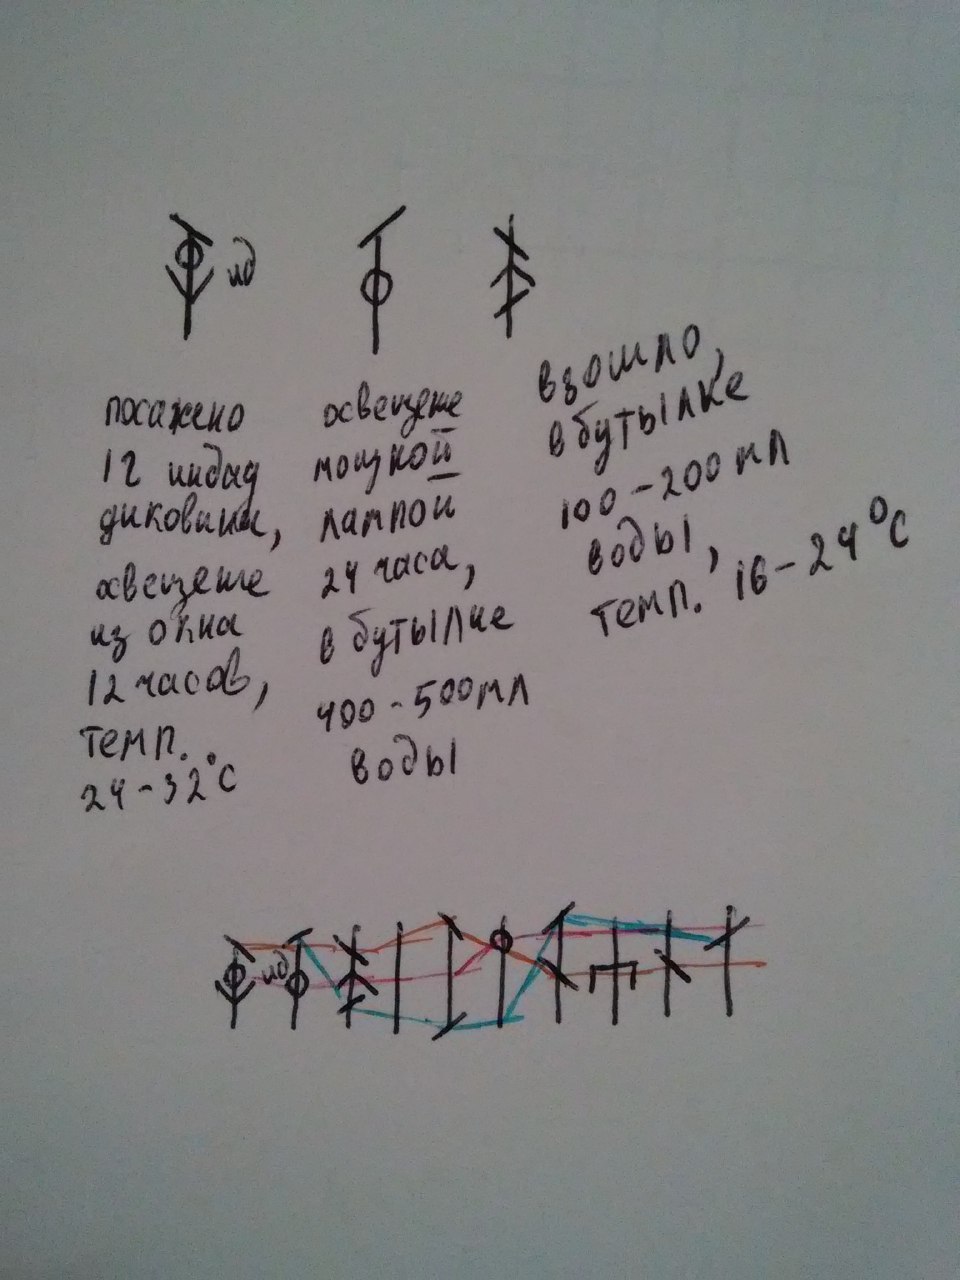 ид
посажено
12 индау
диковины,
освещение
из окна
12 часов,
темп.
24-32°C
освещение
мощной
лампой
24 часа,
в бутылке
400-500мл
воды
взошло,
в бутылке
100-200мл
воды,
темп. 16-24°C
ид